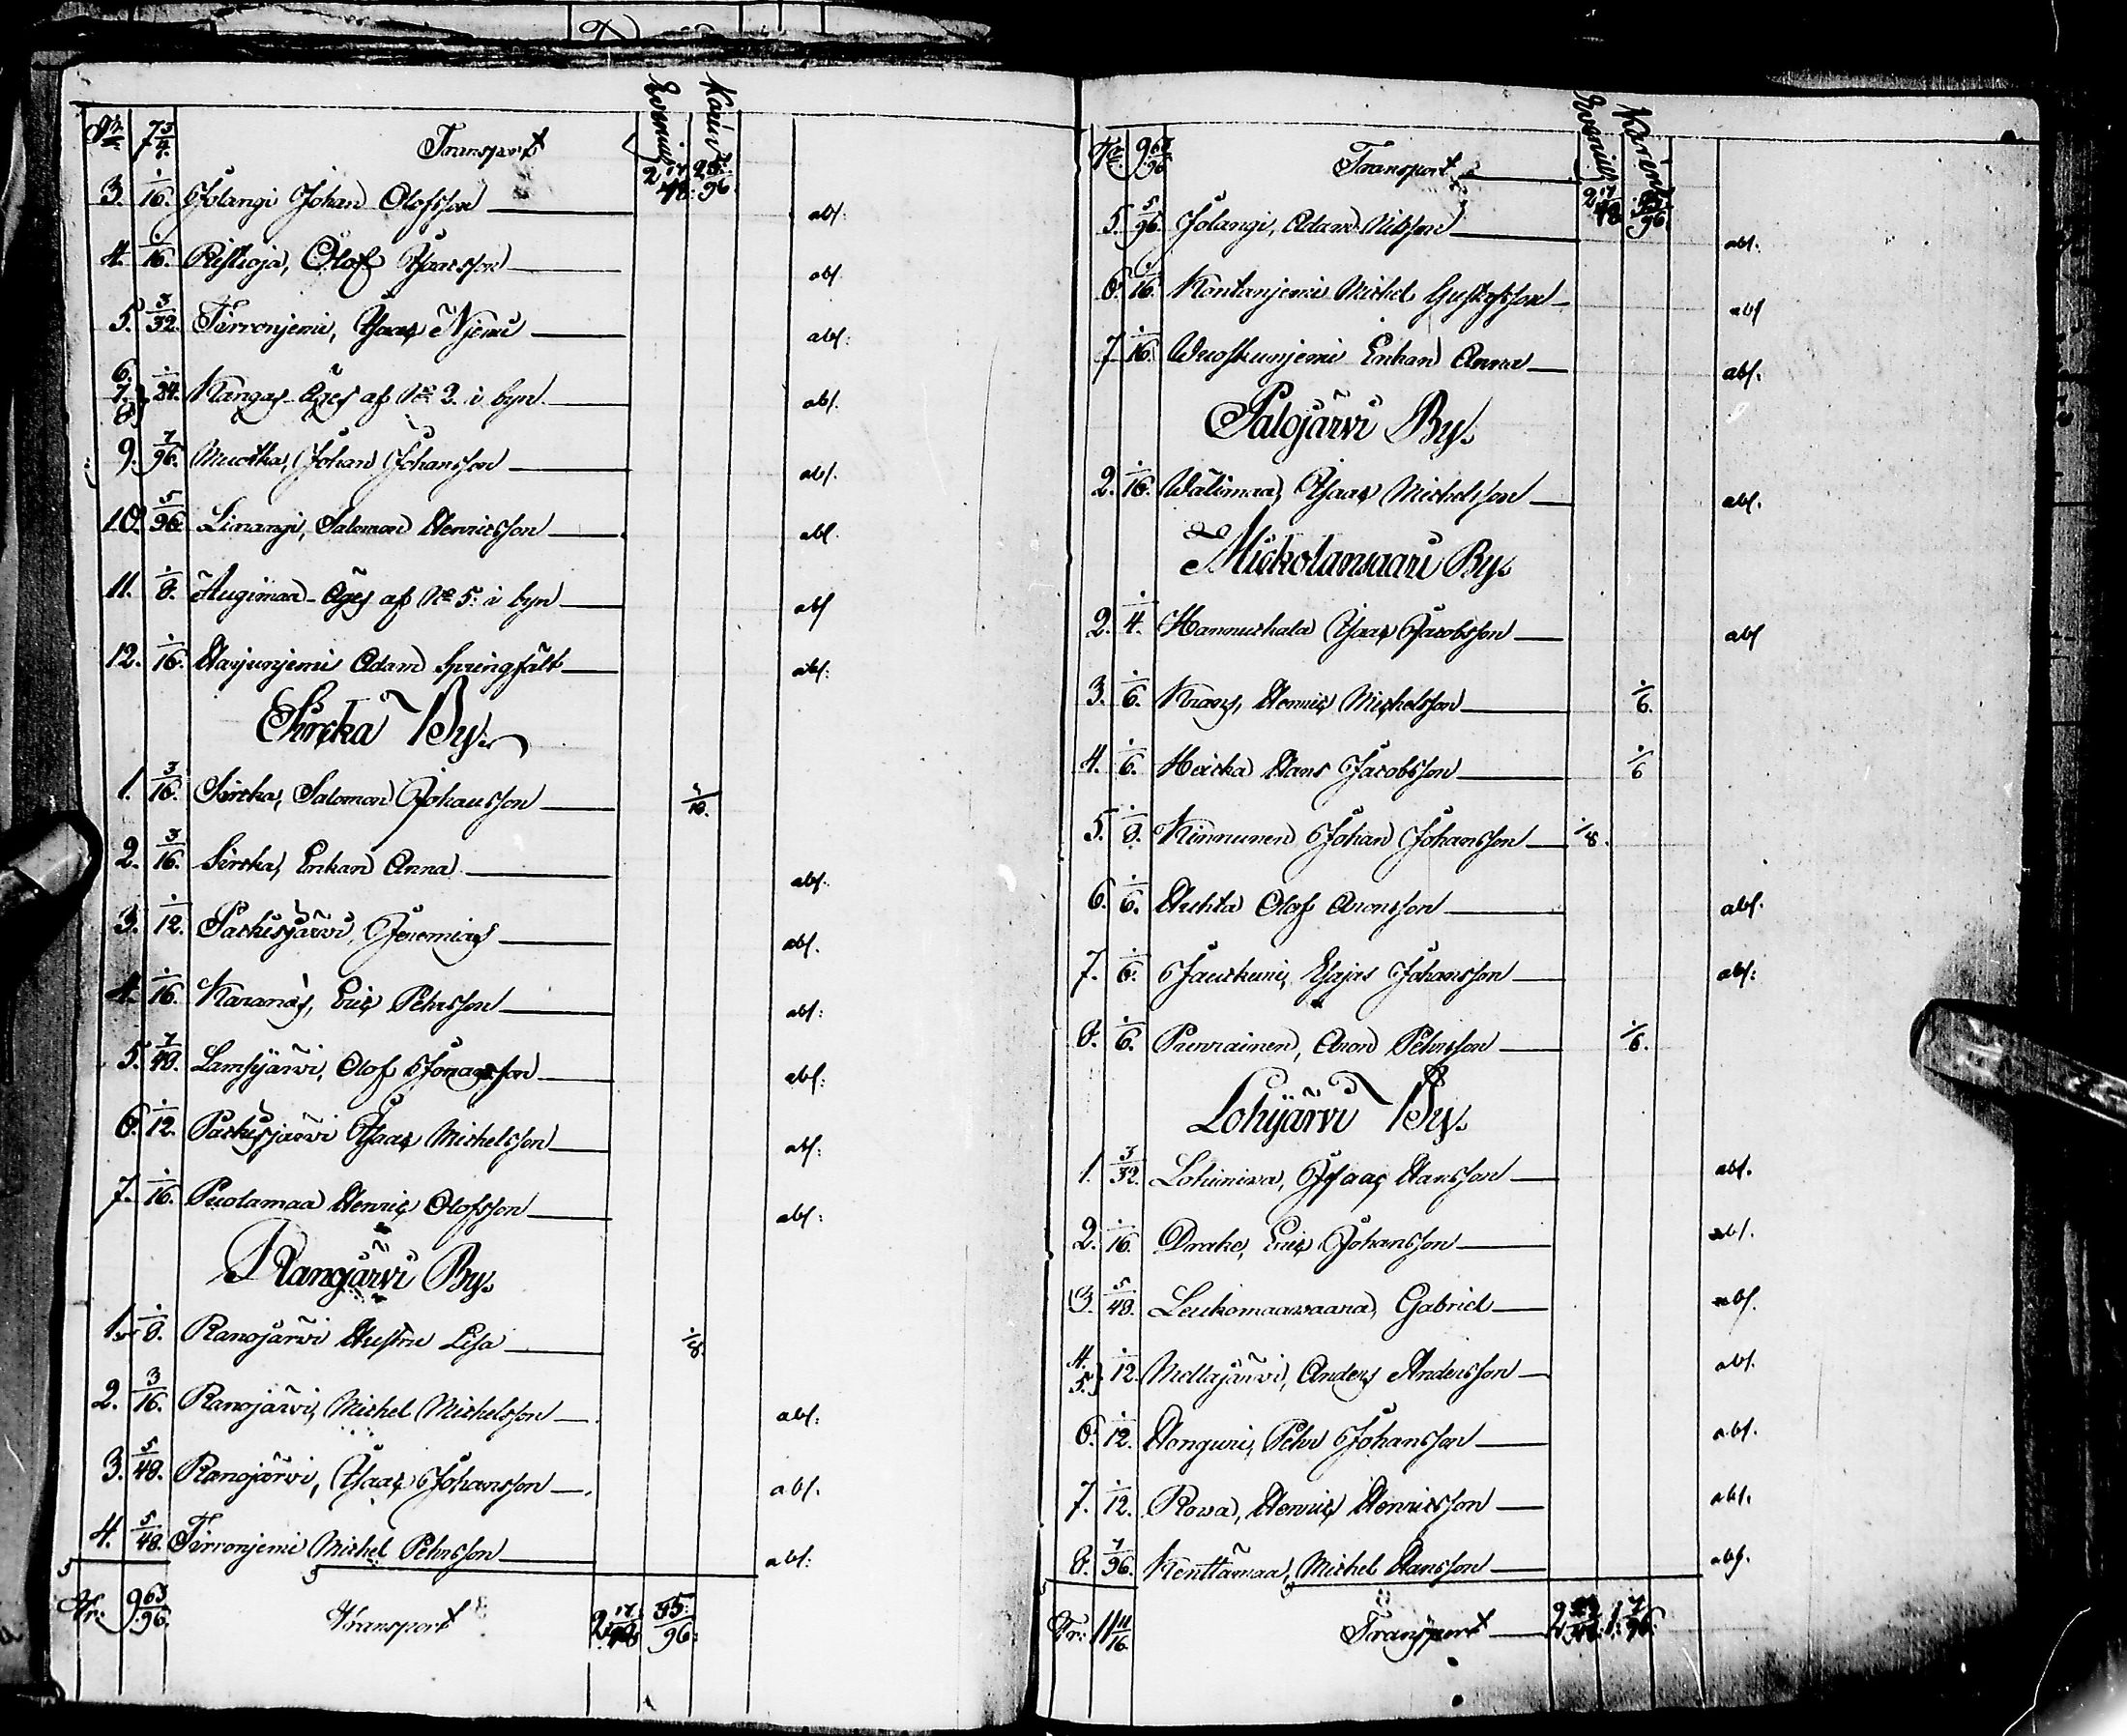 Evenius Karin
Tr. 7 3/4. Transport 2 17/48. 23/96
3. 1/16. Jolangi Johan Olofsson abs:
4. 1/16. Ristioja, Olof Isaacsson abs.
5. 3/32. Tirronjemi, Isaac Njemi abs:
6. 7. 8 } 1/24. Kangas Äges af No 2. i byn abs.
9. 7/96. Muotka, Johan Johansson abs.
10. 5/96. Linangi, Salomon Henricsson abs.
11. 1/8. Äugimaa Äges af No 5. i byn abs
12. 1/16. Harjunjemi Adam Springfält abs:
Sircka By.
1. 3/16. Sircka, Salomon Johansson
2. 3/16. Sircka, Enkan Anna abs.
3. 1/12. Packisjärvi, Jeremias abs.
4. 1/16. Karanäs, Eric Pehrsson abs:
5. 7/48. Lamsijärvi, Olof Jonasson abs:
6. 1/12. Packisjärvi Isaac Michelsson abs:
7. 1/16. Puolamaa Henric Olofsson abs:
Ranojärvi By.
1. 1/8. Ranojärvi Hustru Lisa 1/8.
2. 3/16. Ranojärvi, Michel Michelsson abs:
3. 5/48. Ranojärvi, Isaac Johansson abs.
4. 5/48. Tirronjemi Michel Pehrsson abs:
Tr. 9 63/96. Transport 2 17/48 35/96.
Evenius Karin
Tr. 9 63/96 Transport 2 17/48 35/96
5. 5/96. Jolangi, Adam Nilsson abs.
6. 1/16. Kontanjemi Michel Gustafsson abs
7 1/16. Wuoskunjemi Enkan Anna abs.
Palojärvi By.
2. 1/16. Wälimaa, Isaac Michelsson abs.
Mickolansaari By.
2. 1/4. Hannuckala Isaac Jacobsson abs
3. 1/6. Krans, Henric Michelsson 1/6.
4. 1/6. Heicka Hans Jacobsson 1/6
5. 1/8. Kinnunen Johan Johansson 1/8.
6. 1/6. Huhta Olof Aronsson abs.
7. 1/6. Jauckuri, Esajas Johansson abs:
8. 1/6. Puurainen, Aron Pehrsson 1/6.
Lohijärvi By.
1. 3/32. Lohiniva, Isaac Hansson abs.
2. 1/16. Drake, Eric Johansson abs.
3. 5/48. Leukomaawaara, Gabriel abs.
4. 5. } 1/12. Mellajärvi, Anders Andersson abs.
6. 1/12. Honguri, Pehr Johansson abs.
7. 1/12. Rowa, Henric Henricsson abs.
8. 7/96. Kenttämaa, Michel Hansson abs.
Tr: 11 11/16. Transport 1 7/96.